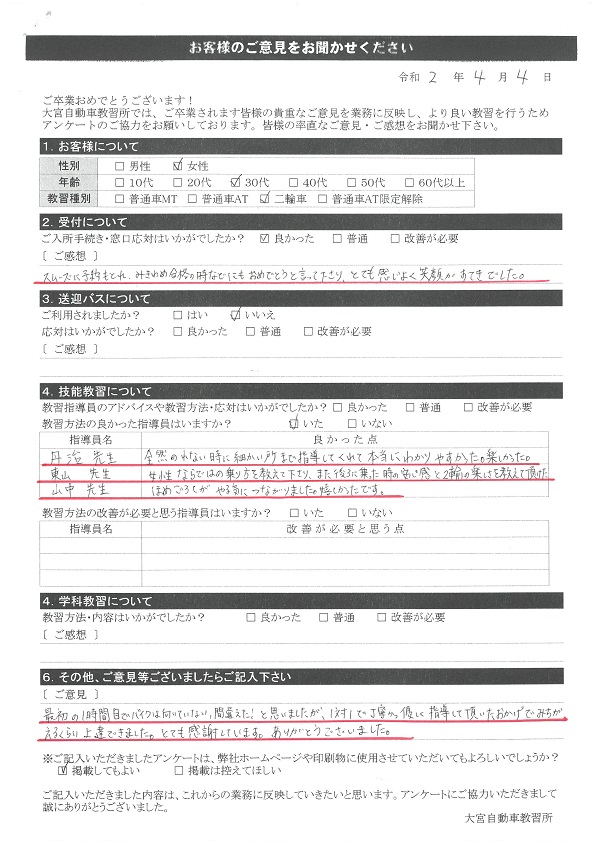 お客様のご意見をお聞かせください
令和 2 年 4 月 4 日
ご卒業おめでとうございます！
大宮自動車教習所では、ご卒業されます皆様の貴重なご意見を業務に反映し、より良い教習を行うため
アンケートのご協力をお願いしております。皆様の率直なご意見・ご感想をお聞かせ下さい。
1. お客様について
性別 □ 男性 ☑ 女性
年齢 □ 10代 □ 20代 ☑ 30代 □ 40代 □ 50代 □ 60代以上
教習種別 □ 普通車MT □ 普通車AT ☑ 二輪車 □ 普通車AT限定解除
2. 受付について
ご入所手続き・窓口応対はいかがでしたか？ ☑ 良かった □ 普通 □ 改善が必要
〔 ご感想 〕
スムーズに予約もとれ、みきわめ合格の時などにもおめでとうと言って下さり、とても感じよく笑顔がすてきでした。
3. 送迎バスについて
ご利用されましたか？ □ はい ☑ いいえ
応対はいかがでしたか？ □ 良かった □ 普通 □ 改善が必要
〔 ご感想 〕
4. 技能教習について
教習指導員のアドバイスや教習方法・応対はいかがでしたか？ □ 良かった □ 普通 □ 改善が必要
教習方法の良かった指導員はいますか？ ☑ いた □ いない
指導員名 良かった点
丹治 先生 全然のれない時に細かい所まで指導してくれて本当にわかりやすかった。楽しかった。
東山 先生 女性ならではの乗り方を教えて下さり、また後ろに乗た時の安心感と2輪の楽しさを教えて頂いた
山中 先生 ほめごろしが やる気につながりました。嬉しかったです。
教習方法の改善が必要と思う指導員はいますか？ □ いた □ いない
指導員名 改善が必要と思う点
4. 学科教習について
教習方法・内容はいかがでしたか？ □ 良かった □ 普通 □ 改善が必要
〔 ご感想 〕
6. その他、ご意見等ございましたらご記入下さい
〔 ご意見 〕
最初の1時間目でバイクは向いていない、間違えた！と思いましたが、1対1で丁寧か。優しく指導して頂いたおかげでみちが
えるくらい上達できました。とても感謝しています。ありがとうございました。
※ご記入いただきましたアンケートは、弊社ホームページや印刷物に使用させていただいてもよろしいでしょうか？
☑ 掲載してもよい □ 掲載は控えてほしい
ご記入いただきました内容は、これからの業務に反映していきたいと思います。アンケートにご協力いただきまして
誠にありがとうございました。
大宮自動車教習所